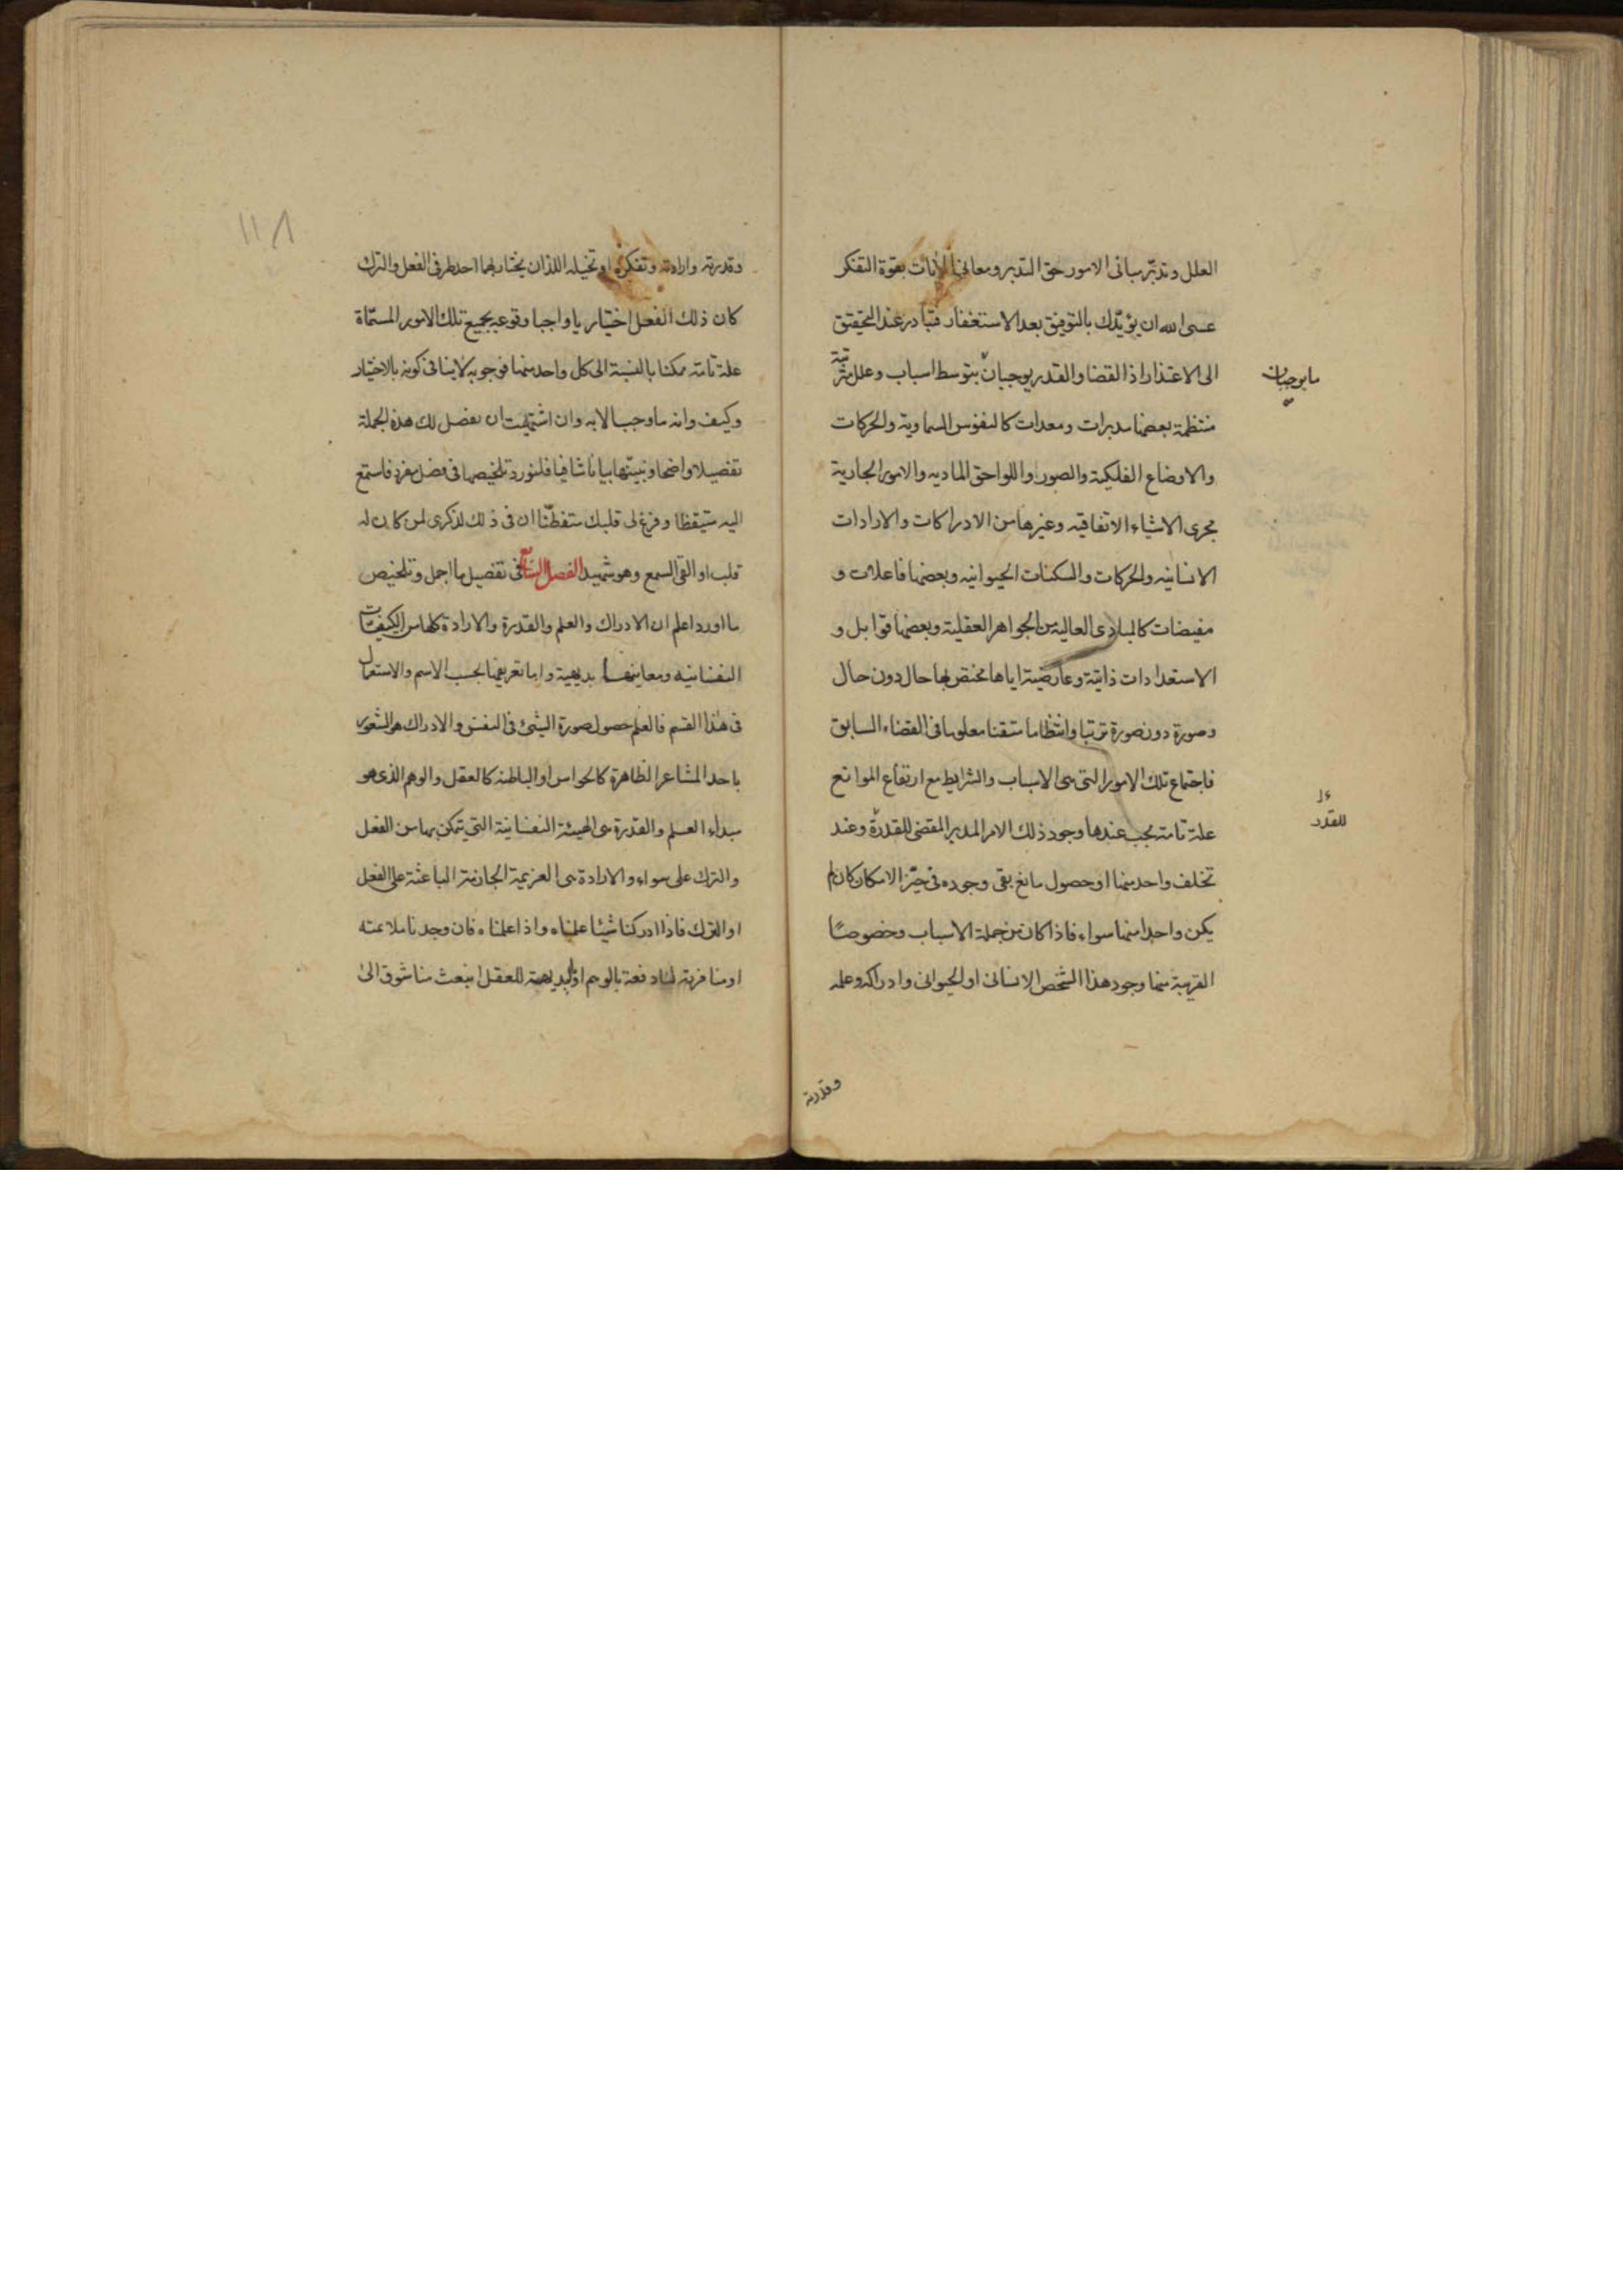 العلل وتدبر مبانى الامور حق التدبر ومعانى الايات بقوة التفكر
عسى الله ان يؤيدك بالتوفيق بعد الاستغفار فتبادر عند التحقيق
الى الاعتذار اذ القضا والقدر يوجبان بتوسط اسباب وعلل مترتبة
مايوجبان
منتظمة بعضها مدبرات ومعدات كالنفوس السماوية والحركات
والاوضاع الفلكية والصور واللواحق الماديه والامور الجارية
مجرى الاشياء الاتفاقيه وغيرها من الادراكات والارادات
الانسانيه والحركات والسكنات الحيوانيه وبعضها فاعلات و
مفيضات كالمبادى العالية من الجواهر العقلية وبعضها قوابل و
الاستعدادات ذاتية وعارضية اياها مختص بها حال دون حال
وصورة دون صورة ترتبا وانتظاما متقنا معلوما فى القضاء السابق
فاجتماع تلك الامور التى هى الاسباب والشرايط مع ارتفاع الموانع
علة تامة يجب عندها وجود ذلك الامر المدبر المقضى للقدرة وعند
للقدر
تخلف واحد منها او حصول مانع بقى وجوده فى حيز الامكان كان لم
يكن واحدا منها سواء فاذا كان من جملة الاسباب وخصوصًا
القريبة منها وجود هذا الشخص الانسانى او الحيوانى وادراكه وعلمه
وقدرته
١١٨
وقدرته وارادته وتفكره او تخيله اللذان يختار بهما احد طرفى الفعل والترك
كان ذلك الفعل اختياريا واجبا وقوعه بجميع تلك الامور المسماة
علة تامة ممكنا بالنسبة الى كل واحد منها فوجوبه لا ينافى كونه بالاختيار
وكيف وانه ما وجب الا به وان اشتهيت ان نفصل لك هذه الجملة
تفصيلا واضحا ونبينها بيانا شافيا فلنورد تلخيصها فى فصل مفرد فاستمع
اليه متيقظا وفرغ لى قلبك متفطنًا ان فى ذلك لذكرى لمن كان له
قلب او القى السمع وهو شهيد الفصل فى تفصيل ما اجمل وتلخيص
ما اورد اعلم ان الادراك والعلم والقدرة والارادة كلها من الكيفيات
النفسانيه ومعاينها بديهية واما تعريفها بحسب الاسم والاستعمال
فى هذا القسم فالعلم حصول صورة الشئ فى النفس والادراك هو الشعور
باحد المشاعر الظاهرة كالحواس او الباطنه كالعقل والوهم الذى هو
مبداء العلم والقدرة هى الهيئة النفسانية التى يتمكن بها من الفعل
والترك على سواء والارادة هى العزيمة الجازمة الباعثة على الفعل
او الترك فاذا ادركنا شيئا علمناه واذا علمناه فان وجدنا ملائمته
او منافرته لنا دفعة بالوهم او ببديهة العقل انبعث منا شوق الى